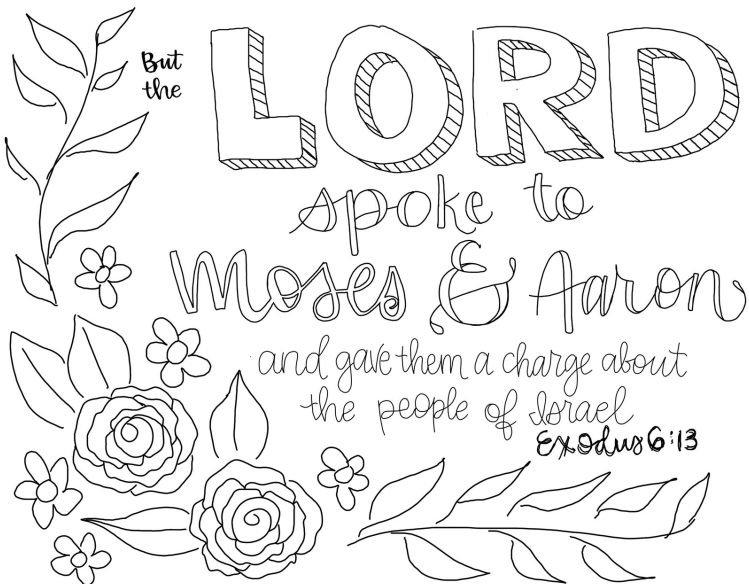 But
the
LORD
spoke to
Moses & Aaron
and gave them a charge about
the people of Israel
Exodus 6:13